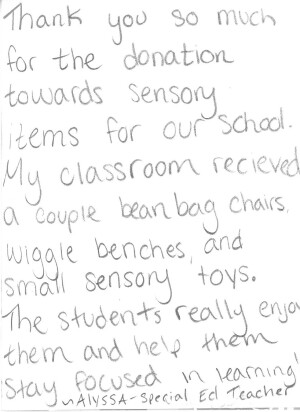 Thank you so much
for the donation
towards sensory
items for our school.
My classroom recieved
a couple bean bag chairs,
wiggle benches, and
small sensory toys.
The students really enjo
them and help them
stay focused in learning!
~Alyssa - Special Ed Teacher